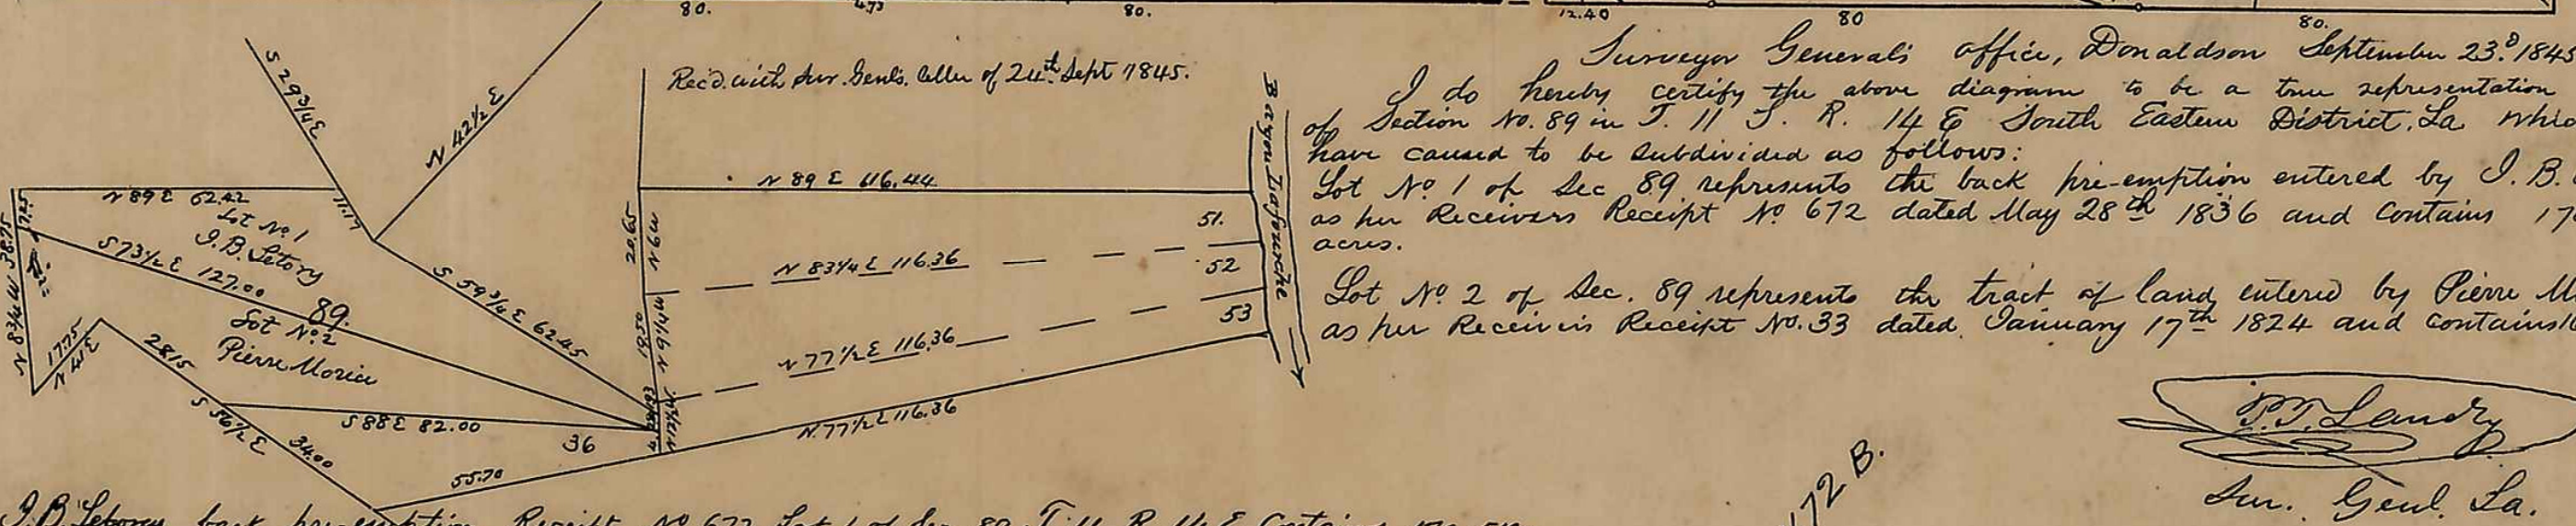 80.
4.73
80.
12.40
80
80.
Rec'd. with Sur. Genl's. letter of 24th Sept 1845.
S 29 3/4 E
N 42 1/2 E
N 89 E 62.42
11.17
Lot No. 1
J. B. Letory
S 73 1/2 E 127.00
89.
Lot No. 2
Pierre Morice
N 8 3/4 W 38.75
17.75
N 41 E
28.15
S 56 1/2 E
34.00
S 88 E 82.00
36
55.70
S 59 3/4 E 62.45
20.65
N 6 W
19.50
N 9 1/4 W
N 89 E 116.44
N 83 1/4 E 116.36
N 77 1/2 E 116.36
N. 77 1/2 E 116.36
51.
52
53
Bayou Lafourche
Surveyor General's office, Donaldson September 23d. 1845
I do hereby certify the above diagram to be a true representation
of Section No. 89 in T. 11 S. R. 14 E South Eastern District. La
have caused to be subdivided as follows:
Lot No. 1 of Sec 89 represents the back pre-emption entered by J. B.
as per Receivers Receipt No 672 dated May 28th 1836 and contains 17
acres.
Lot No. 2 of Sec. 89 represents the tract of land entered by Pierre M
as per Receivers Receipt No. 33 dated January 17th 1824 and contains
P. T. Landry
Sur. Genl. La.
172 B.
J. B. Letorey back pre-emption Receipt No 672 Lot 1 of Sec 89 T. 11 R. 14 E